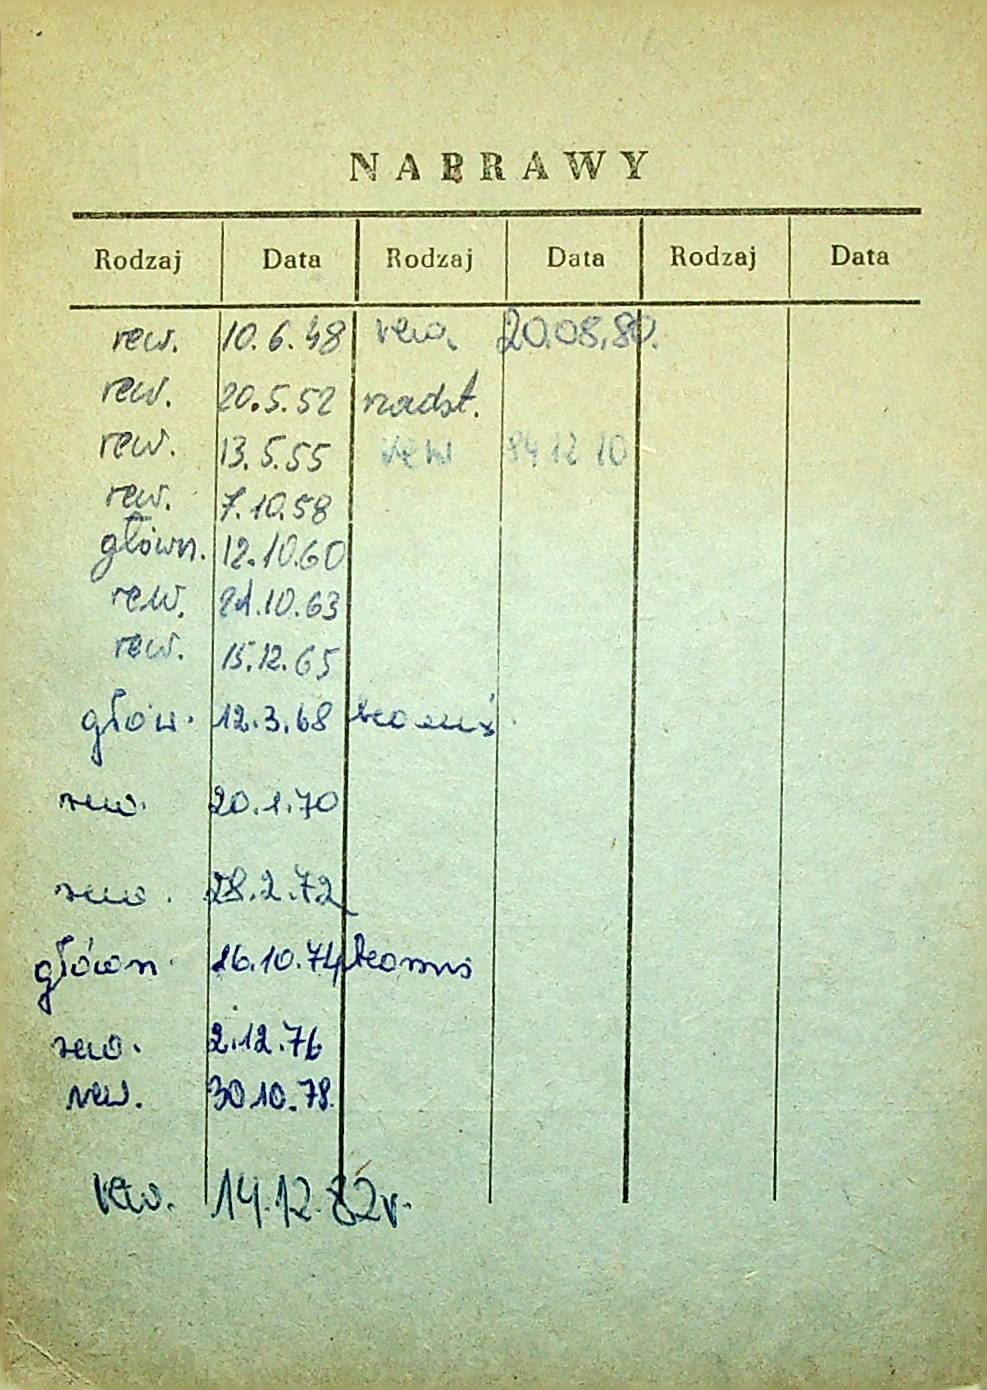 NAPRAWY
Rodzaj Data Rodzaj Data Rodzaj Data
rew. 10.6.48 rew. 20.08.80.
rew. 20.5.52 nadst.
rew. 13.5.55 rew 84 12 10
rew. 7.10.58
główn. 12.10.60
rew. 21.10.63
rew. 15.12.65
głów. 12.3.68
rew. 20.1.70
rew. 28.2.72
główn. 16.10.74
rew. 2.12.76
rew. 30.10.78.
rew. 14.12.82r.